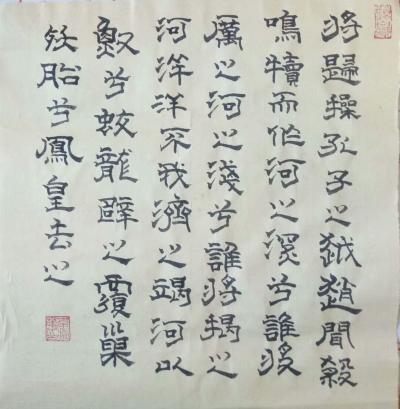 將歸操孔子之越趙聞殺
鳴犢而作河之深兮誰將
厲之河之淺兮誰將揭之
河洋洋不我濟之竭河以
兮蛟龍壁之覆巢
妖胎兮鳳皇去之